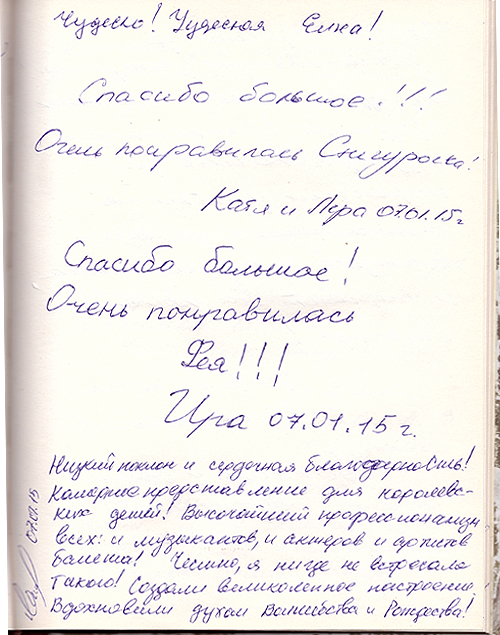 Чудесно! Чудесная Елка!
Спасибо большое!!!
Очень понравилась Снегурочка!
Катя и Лера 07.01.15г
Спасибо большое!
Очень понравилась
Фея!!!
Ира 07.01.15 г.
Низкий поклон и сердечная благодарность!
Камерное представление для королевс-
ких детей! Высочайший профессионализм
всех: и музыкантов, и актеров и артистов
балета! Честно, я нигде не встречала
такого! Создали великолепное настроение,
Вдохновили духом Волшебства и Рождества!
07.01.15